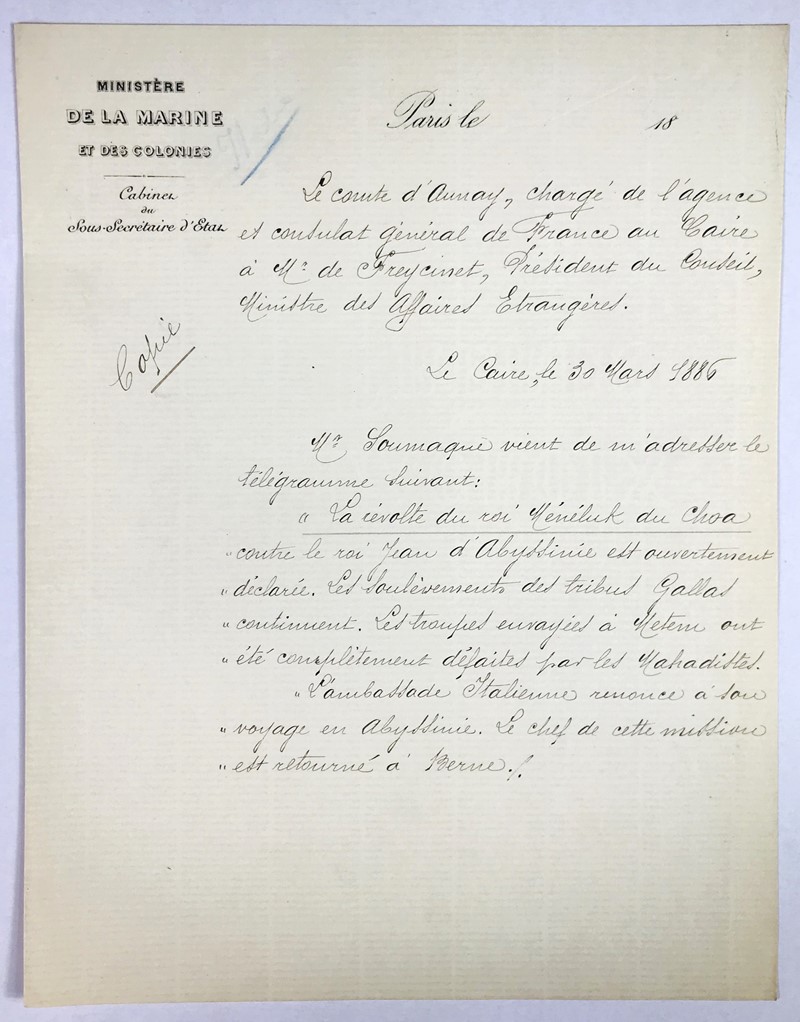 MINISTÈRE
DE LA MARINE
ET DES COLONIES
Cabinet
du
Sous-Secrétaire d'Etat
Paris le 18
Copie
Le comte d'Aunay, chargé de l'agence
et consulat général de France au Caire
à Mr de Freycinet, Président du Conseil,
Ministre des Affaires Etrangères.
Le Caire, le 30 Mars 1886
Mr Soumaque vient de m'adresser le
télégramme suivant:
"La révolte du roi Ménéluk du Choa
"contre le roi Jean d'Abyssinie est ouvertement
"déclarée. Les soulèvements des tribus Gallas
"continuent. Les troupes envoyées à Metem ont
"été complètement défaites par les Mahadistes.
"L'ambassade Italienne renonce à son
"voyage en Abyssinie. Le chef de cette mission
"est retourné à Berne./.